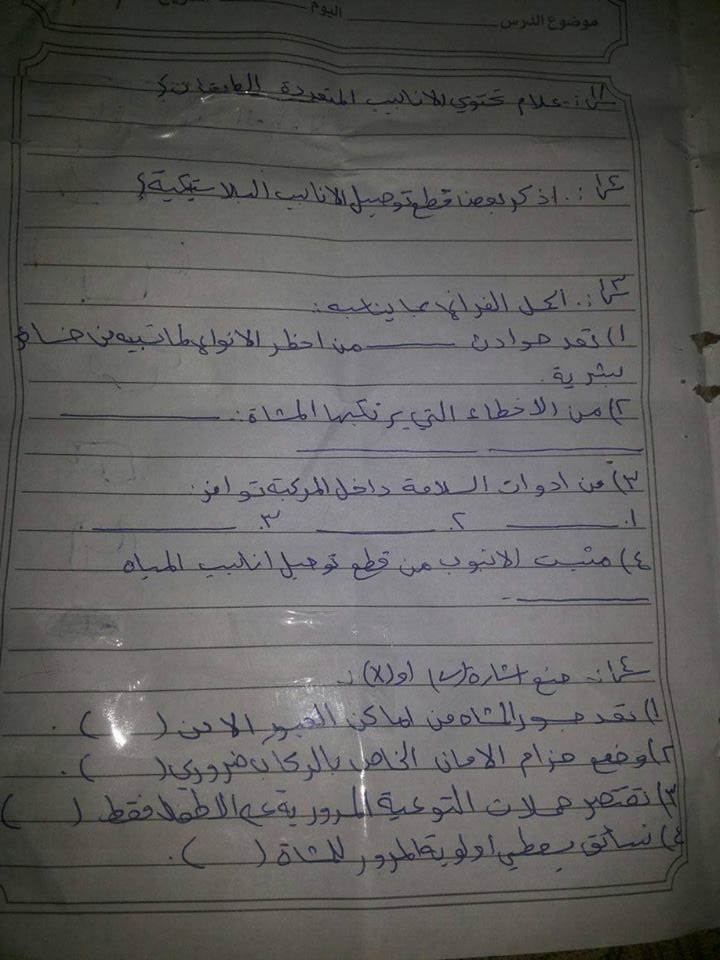 موضوع الدرس اليوم
س١:- علام تحتوي الانابيب المتعددة الطبقات؟
س٢:. اذكر بعض قطع توصيل الانابيب البلاستيكية؟
س٣:. أكمل الفراغ بما يناسبه:.
١) تعد حوادث ـــــ من اخطر الانواع لما تسببه من خسائر
بشرية.
٢) من الاخطاء التي يرتكبها المشاة:.
٣) من ادوات السلامة داخل المركبة توافر:
١. ٢. ٣.
٤) مثبت الانبوب من قطع توصيل انابيب المياه
س٤:- ضع اشارة (✓) او (X):.
١) تعد جسور المشاه من اماكن العبور الامن ( ).
٢) وضع حزام الامان الخاص بالركاب ضروري ( ).
٣) تقتصر حملات التوعية المرورية على الاطفال فقط ( )
٤) سائق يعطي أولوية المرور للمشاة ( ).